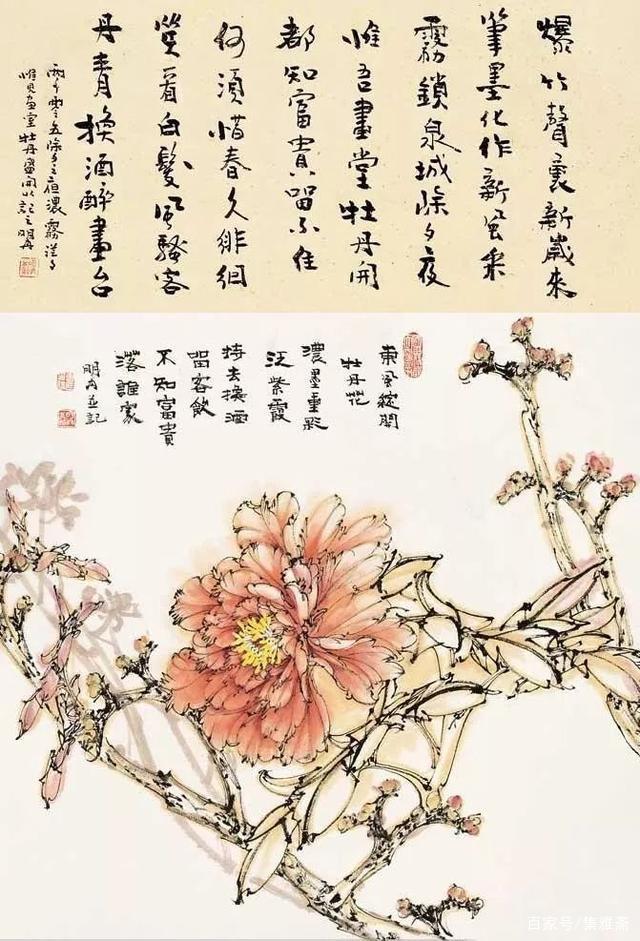 爆竹聲裏新歲來
筆墨化作新風采
霧鎖泉城除夕夜
惟吾畫堂牡丹開
都知富貴留不住
何須惜春久徘徊
笑看白髮風騷客
丹青換酒醉畫台
零五除夕之夜濃霧
惟見畫堂牡丹盛開以記之
東風綻開
牡丹花
濃墨重彩
泛紫霞
持去換酒
留客飲
不知富貴
落誰家
明冉並記
百家号/集雅斋